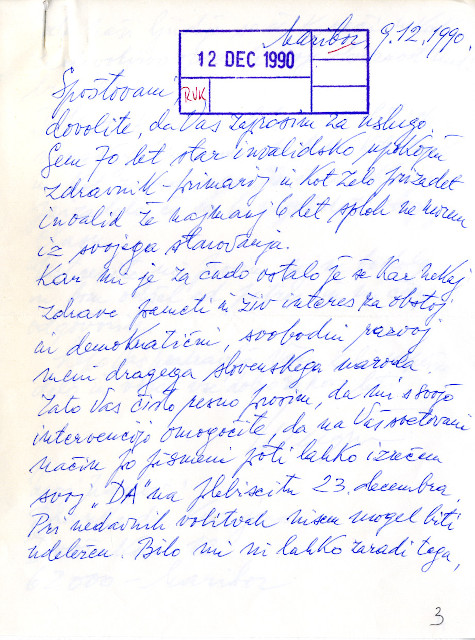 Maribor, 9.12.1990.
12 DEC 1990
RVK
Spoštovani,
dovolite, da Vas zaprosim za uslugo.
Sem 70 let star invalidsko upokojen
zdravnik-primarij in kot zelo prizadet
invalid že najmanj 6 let sploh ne morem
iz svojega stanovanja.
Kar mi je za čudo ostalo je še kar nekaj
zdrave pameti in živ interes za obstoj
in demokratični, svobodni razvoj
meni dragega slovenskega naroda.
Zato Vas čisto resno prosim, da mi s svojo
intervencijo omogočite, da na Vaš svetovani
način po pismeni poti lahko izrečem
svoj „DA" na plebiscitu 23. decembra.
Pri nedavnih volitvah nisem mogel biti
udeležen. Bilo mi ni lahko zaradi tega,
3